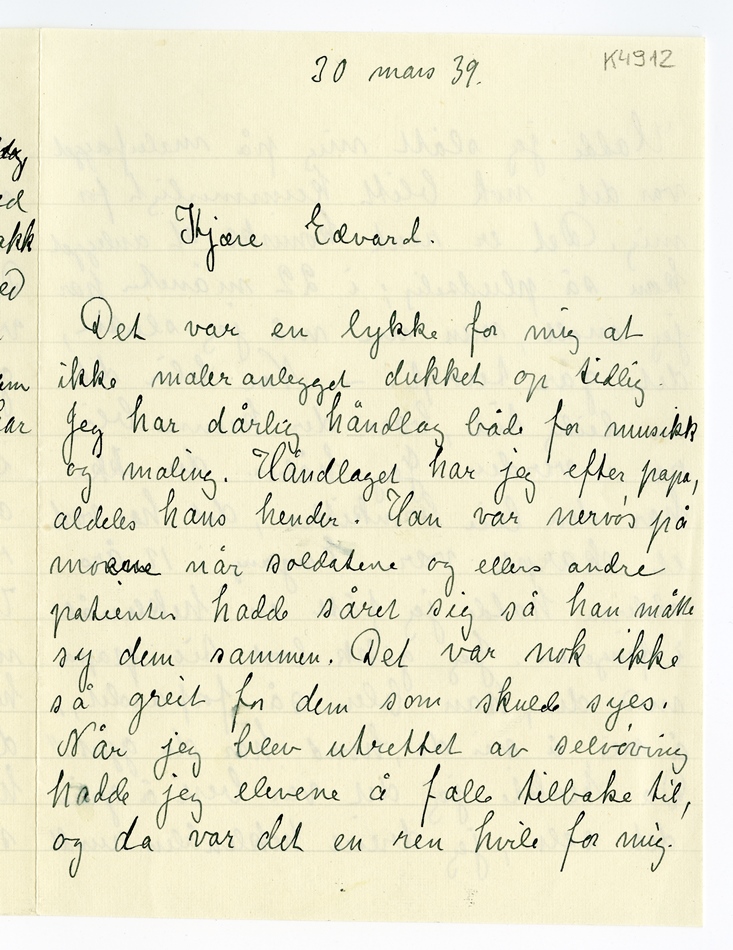 30 mars 39.
K4912
Kjære Edvard.
Det var en lykke for mig at
ikke maleranlegget dukket op tidlig.
Jeg har dårlig håndlag både for musikk
og maling. Håndlaget har jeg efter papa,
aldeles hans hender. Han var nervøs på
moene når soldatene og ellers andre
patienter hadde såret sig så han måtte
sy dem sammen. Det var nok ikke
så greit for dem som skulde syes.
Når jeg blev utrettet av selvøving
hadde jeg elevene å falle tilbake til,
og da var det en ren hvile for mig.